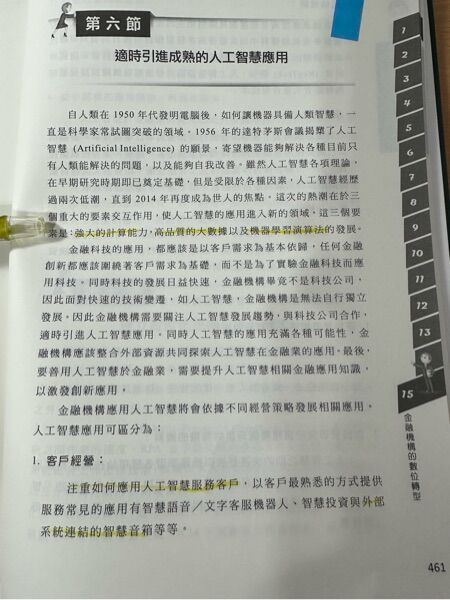 第六節
適時引進成熟的人工智慧應用
自人類在 1950 年代發明電腦後，如何讓機器具備人類智慧，一
直是科學家常試圖突破的領域。1956 年的達特茅斯會議揭櫫了人工
智慧 (Artificial Intelligence) 的願景，寄望機器能夠解決各種目前只
有人類能解決的問題，以及能夠自我改善。雖然人工智慧各項理論，
在早期研究時期即已奠定基礎，但是受限於各種因素，人工智慧經歷
過兩次低潮，直到 2014 年再度成為世人的焦點，這次的熱潮在於三
個重大的要素交互作用，使人工智慧的應用進入新的領域，這三個要
素是：強大的計算能力，高品質的大數據以及機器學習演算法的發展。
金融科技的應用，都應該是以客戶需求為基本依歸，任何金融
創新都應該圍繞著客戶需求為基礎，而不是為了實驗金融科技而應
用科技。同時科技的發展日益快速，金融機構畢竟不是科技公司，
因此面對快速的技術變遷，如人工智慧，金融機構是無法自行獨立
發展。因此金融機構需要關注人工智慧發展趨勢，與科技公司合作，
適時引進人工智慧應用。同時人工智慧的應用充滿各種可能性，金
融機構應該整合外部資源共同探索人工智慧在金融業的應用。最後，
要善用人工智慧於金融業，需要提升人工智慧相關金融應用知識，
以激發創新應用。
金融機構應用人工智慧將會依據不同經營策略發展相關應用。
人工智慧應用可區分為：
1. 客戶經營：
注重如何應用人工智慧服務客戶，以客戶最熟悉的方式提供
服務常見的應用有智慧語音／文字客服機器人、智慧投資與外部
系統連結的智慧音箱等等。
1
2
3
4
5
6
7
8
9
10
11
12
13
15
金融機構的數位轉型
461